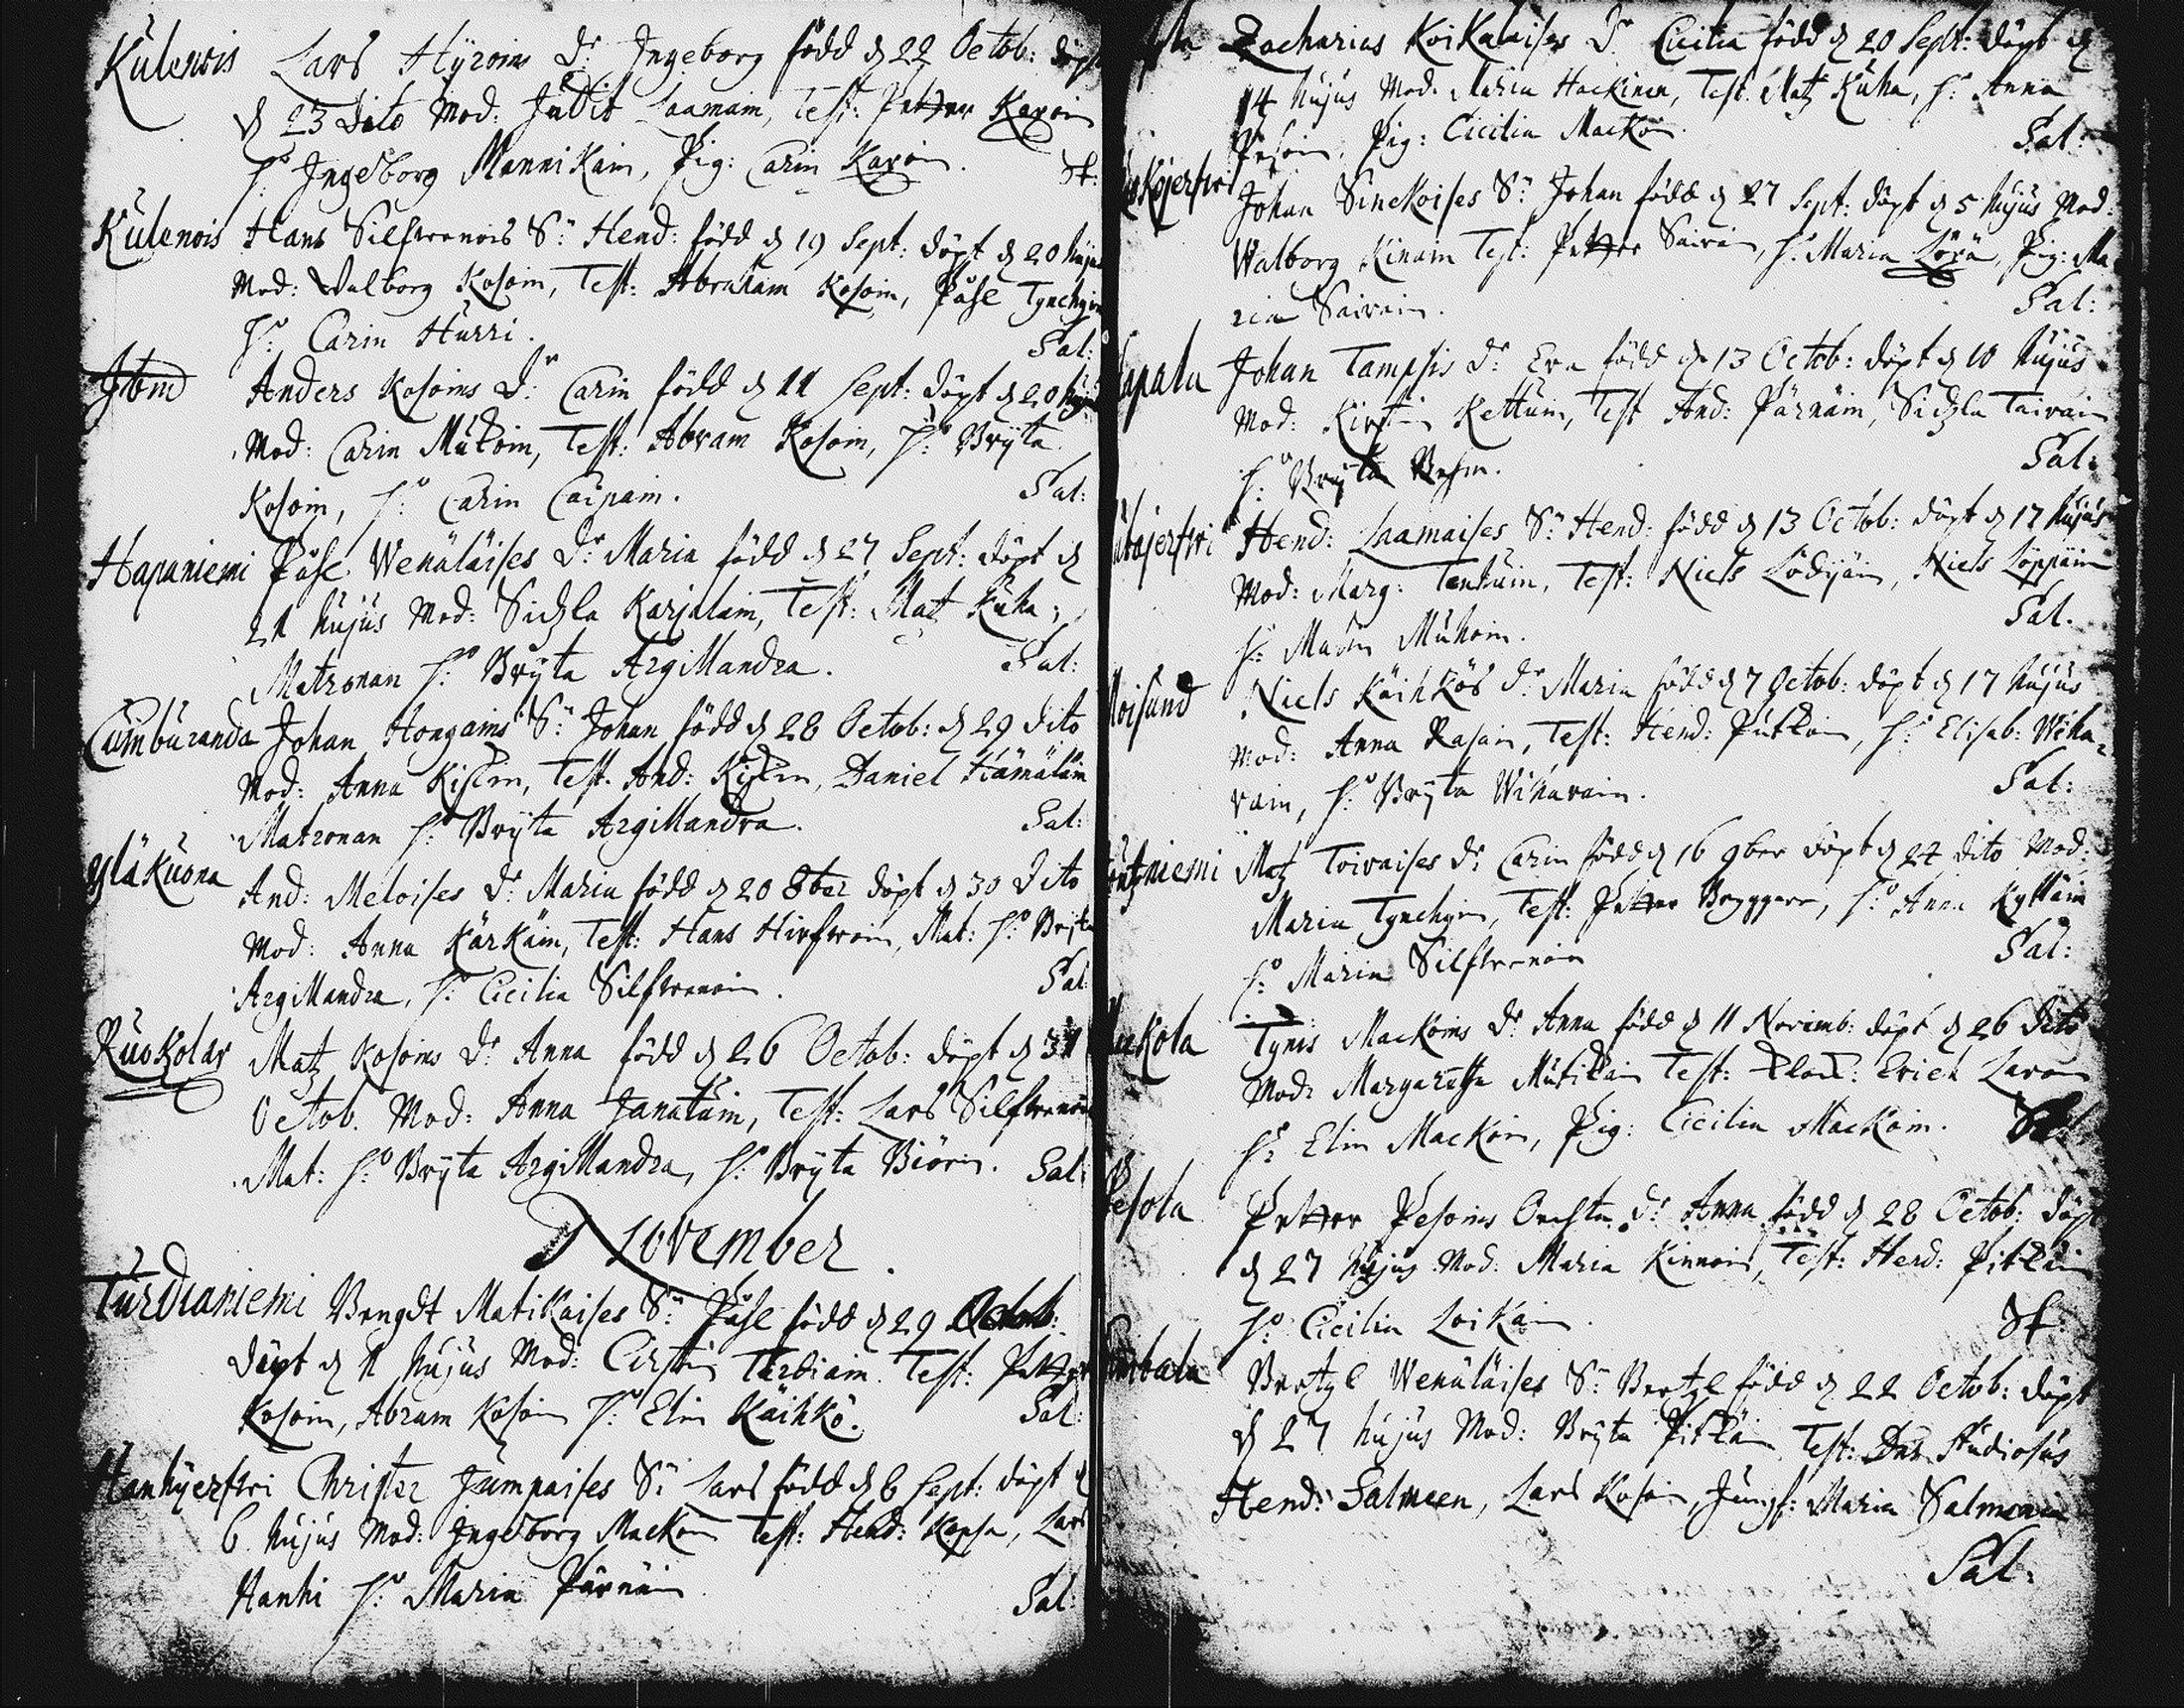 Kulenois Lars Hyroins Dr Ingeborg född d 22 Octob: döpt
d 23 Dito Mod: Judit Laamain, Test: Petter Karoin
H: Ingeborg Mannikain, Pig: Carin Karoin. St:
Kulenois Hans Silfwenois Sn Hend: född d 19 Sept: döpt d 20 hujus
Mod: Walborg Kosoin, Test: Abraham Kosoin, Påfl Tynchyin
H: Carin Hurri. Sal:
Jbm Anders Kosoins Dr Carin född d 11 Sept: döpt d 20 hujus
Mod: Carin Mutoin, Test: Abram Kosoin, H: Bryta
Kosoin, H: Carin Caipain. Sal:
Hapaniemi Påfl Wenäläises Dr Maria född d 27 Sept: döpt d
21 hujus Mod: Sidzla Karjalain, Test: Matz Kuha,
Matronan H: Bryta Argillandra. Sal:
Cumburanda Johan Hongains Sn Johan född d 28 Octob: d 29 dito
Mod: Anna Kislin, Test. And: Kislin, Daniel Hämäläin
Matronan H: Bryta Argillandra. Sal:
Yläkuona And: Meloises Dr Maria född d 20 8ber döpt d 30 Dito
Mod: Anna Kärkäin, Test: Hans Hirfwoin, Mat: H: Bryta
Argillandra, H: Cicilia Silfwenoin. Sal:
Ruokolax Matz Kosoins Dr Anna född d 26 Octob: döpt d 31
Octob. Mod: Anna Janatuin, Test: Lars Silfwenoin
Mat: H: Bryta Argillandra, H: Bryta Biörn. Sal:
November.
Turdianiemi Bengdt Matikaises Sn Påfl född d 29 Octob:
döpt d 11 hujus Mod: Cirstin Turdiain. Test: Petter
Kosoin, Abram Kosoin H: Elin Käihkö. Sal:
Hanhijerfwi Christer Jumpaises Sn Lars född d 6 Sept: döpt d
6 hujus Mod: Ingeborg Mackoin Test: Hend: Kopsa, Lars
Hanhi H: Maria Pärnäin Sal:
Zacharias Koikalaises Dr Cicilia född d 20 Sept: döpt d
14 hujus Mod: Maria Hackinen, Test. Matz Kuha, H: Anna
Pesoin, Pig: Cicilia Mackoin. Sal:
Johan Sinckoises Sn Johan född d 27 Sept: döpt d 5 hujus Mod:
Walborg Kinain Test: Petter Sairain, H: Maria Lörä, Pig: Ma
ria Sairain. Sal:
Johan Tampsis Dr Eva född d 13 Octob: döpt d 10 hujus
Mod: Kirstin Kettuin, Test And: Pärnäin, Sidzla Tairain
H: Bryta Behm. Sal:
Hend: Lhamaises Sn Hend: född d 13 Octob: döpt d 17 hujus
Mod: Marg: Tenhuin, Test: Niels Lödijäin, Niels Löppäin
H: Malin Muhoin. Sal.
Niels Käihkös Dr Maria född d 7 Octob: döpt d 17 hujus
Mod: Anna Rasain, Test: Hend: Putkoin, H: Elisab: Wiha-
vain, H: Bryta Wihavain. Sal:
Matz Toivaises Dr Carin född d 16 9ber döpt d 24 dito Mod:
Maria Tynchyin, Test: Petter Bryggare, H: Anna Kyttäin
H: Maria Silfwenoin Sal:
Tynis Mackoins Dr Anna född d 11 Novemb: döpt d 26 Dito
Mod: Margaretha Mutikain Test: Klock: Erich Lavoin
H: Elin Mackoin, Pig: Cicilia Mackoin. Sal
Pesola Petter Pesoins Dr Anna född d 28 Octob: döpt
d 27 hujus Mod: Maria Kinnoin, Test: Hend: Pitkäin
H: Cicilia Loikain. St:
Bertzl Wenäläises Sn Bertzl född d 22 Octob: döpt
d 27 hujus Mod: Bryta Pitkäin Test: Dns Studiosus
Hend: Salmeen, Lars Kosoin, Jungf: Maria Salmenia
Sal: